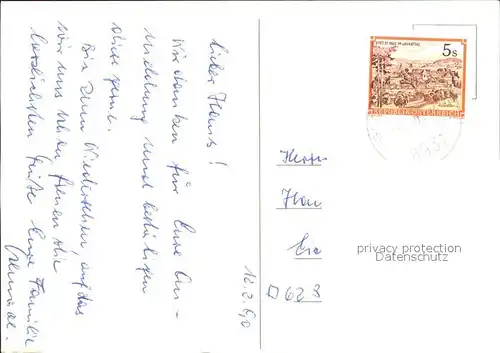 Lieber Hans!
Wir danken für Eure An-
meldung und bestätigen
diese gerne.
Bis zum Wiedersehen, auf das
wir uns schon freuen die
herzlichsten Grüße Eure Familie
12.2.90
STIFT ST. PAUL IM LAVANTTAL
5s
REPUBLIK ÖSTERREICH
Herrn
Han
D 623
privacy protection
Datenschutz